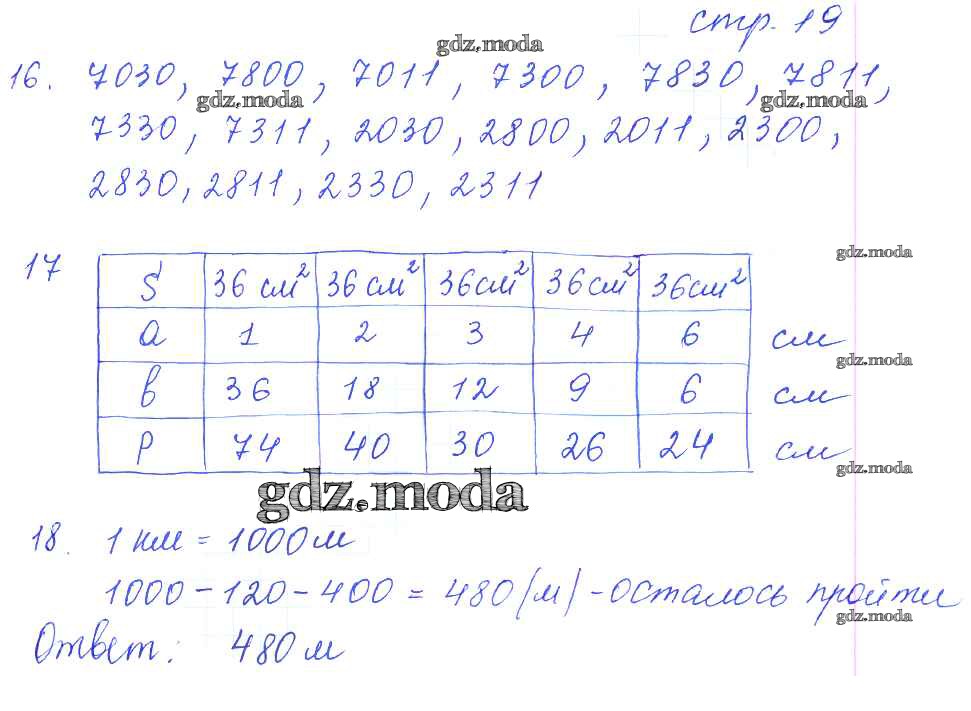 стр. 19
gdz.moda
16. 7030, 7800, 7011, 7300, 7830, 7811,
gdz.moda gdz.moda
7330, 7311, 2030, 2800, 2011, 2300,
2830, 2811, 2330, 2311
gdz.moda
17 S 36 см² 36 см² 36 см² 36 см² 36 см²
a 1 2 3 4 6 см
gdz.moda
в 36 18 12 9 6 см
P 74 40 30 26 24 см
gdz.moda
gdz.moda
18. 1 км = 1000 м
1000 - 120 - 400 = 480 (м) - осталось пройти
gdz.moda
Ответ: 480 м